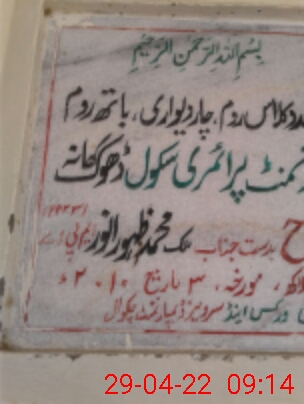 بِسْمِ اللهِ الرَّحْمٰنِ الرَّحِیْمِ
کلاس روم، چار دیواری، باتھ روم
نمنٹ پرائمری سکول ڈھوک گھانہ
ح بدست جناب ملک محمد ظہور انور
مورخہ ۳ تاریخ ۲۰۱۰ء
ورکس اینڈ سروسز ڈیپارٹمنٹ چکوال
29-04-22 09:14